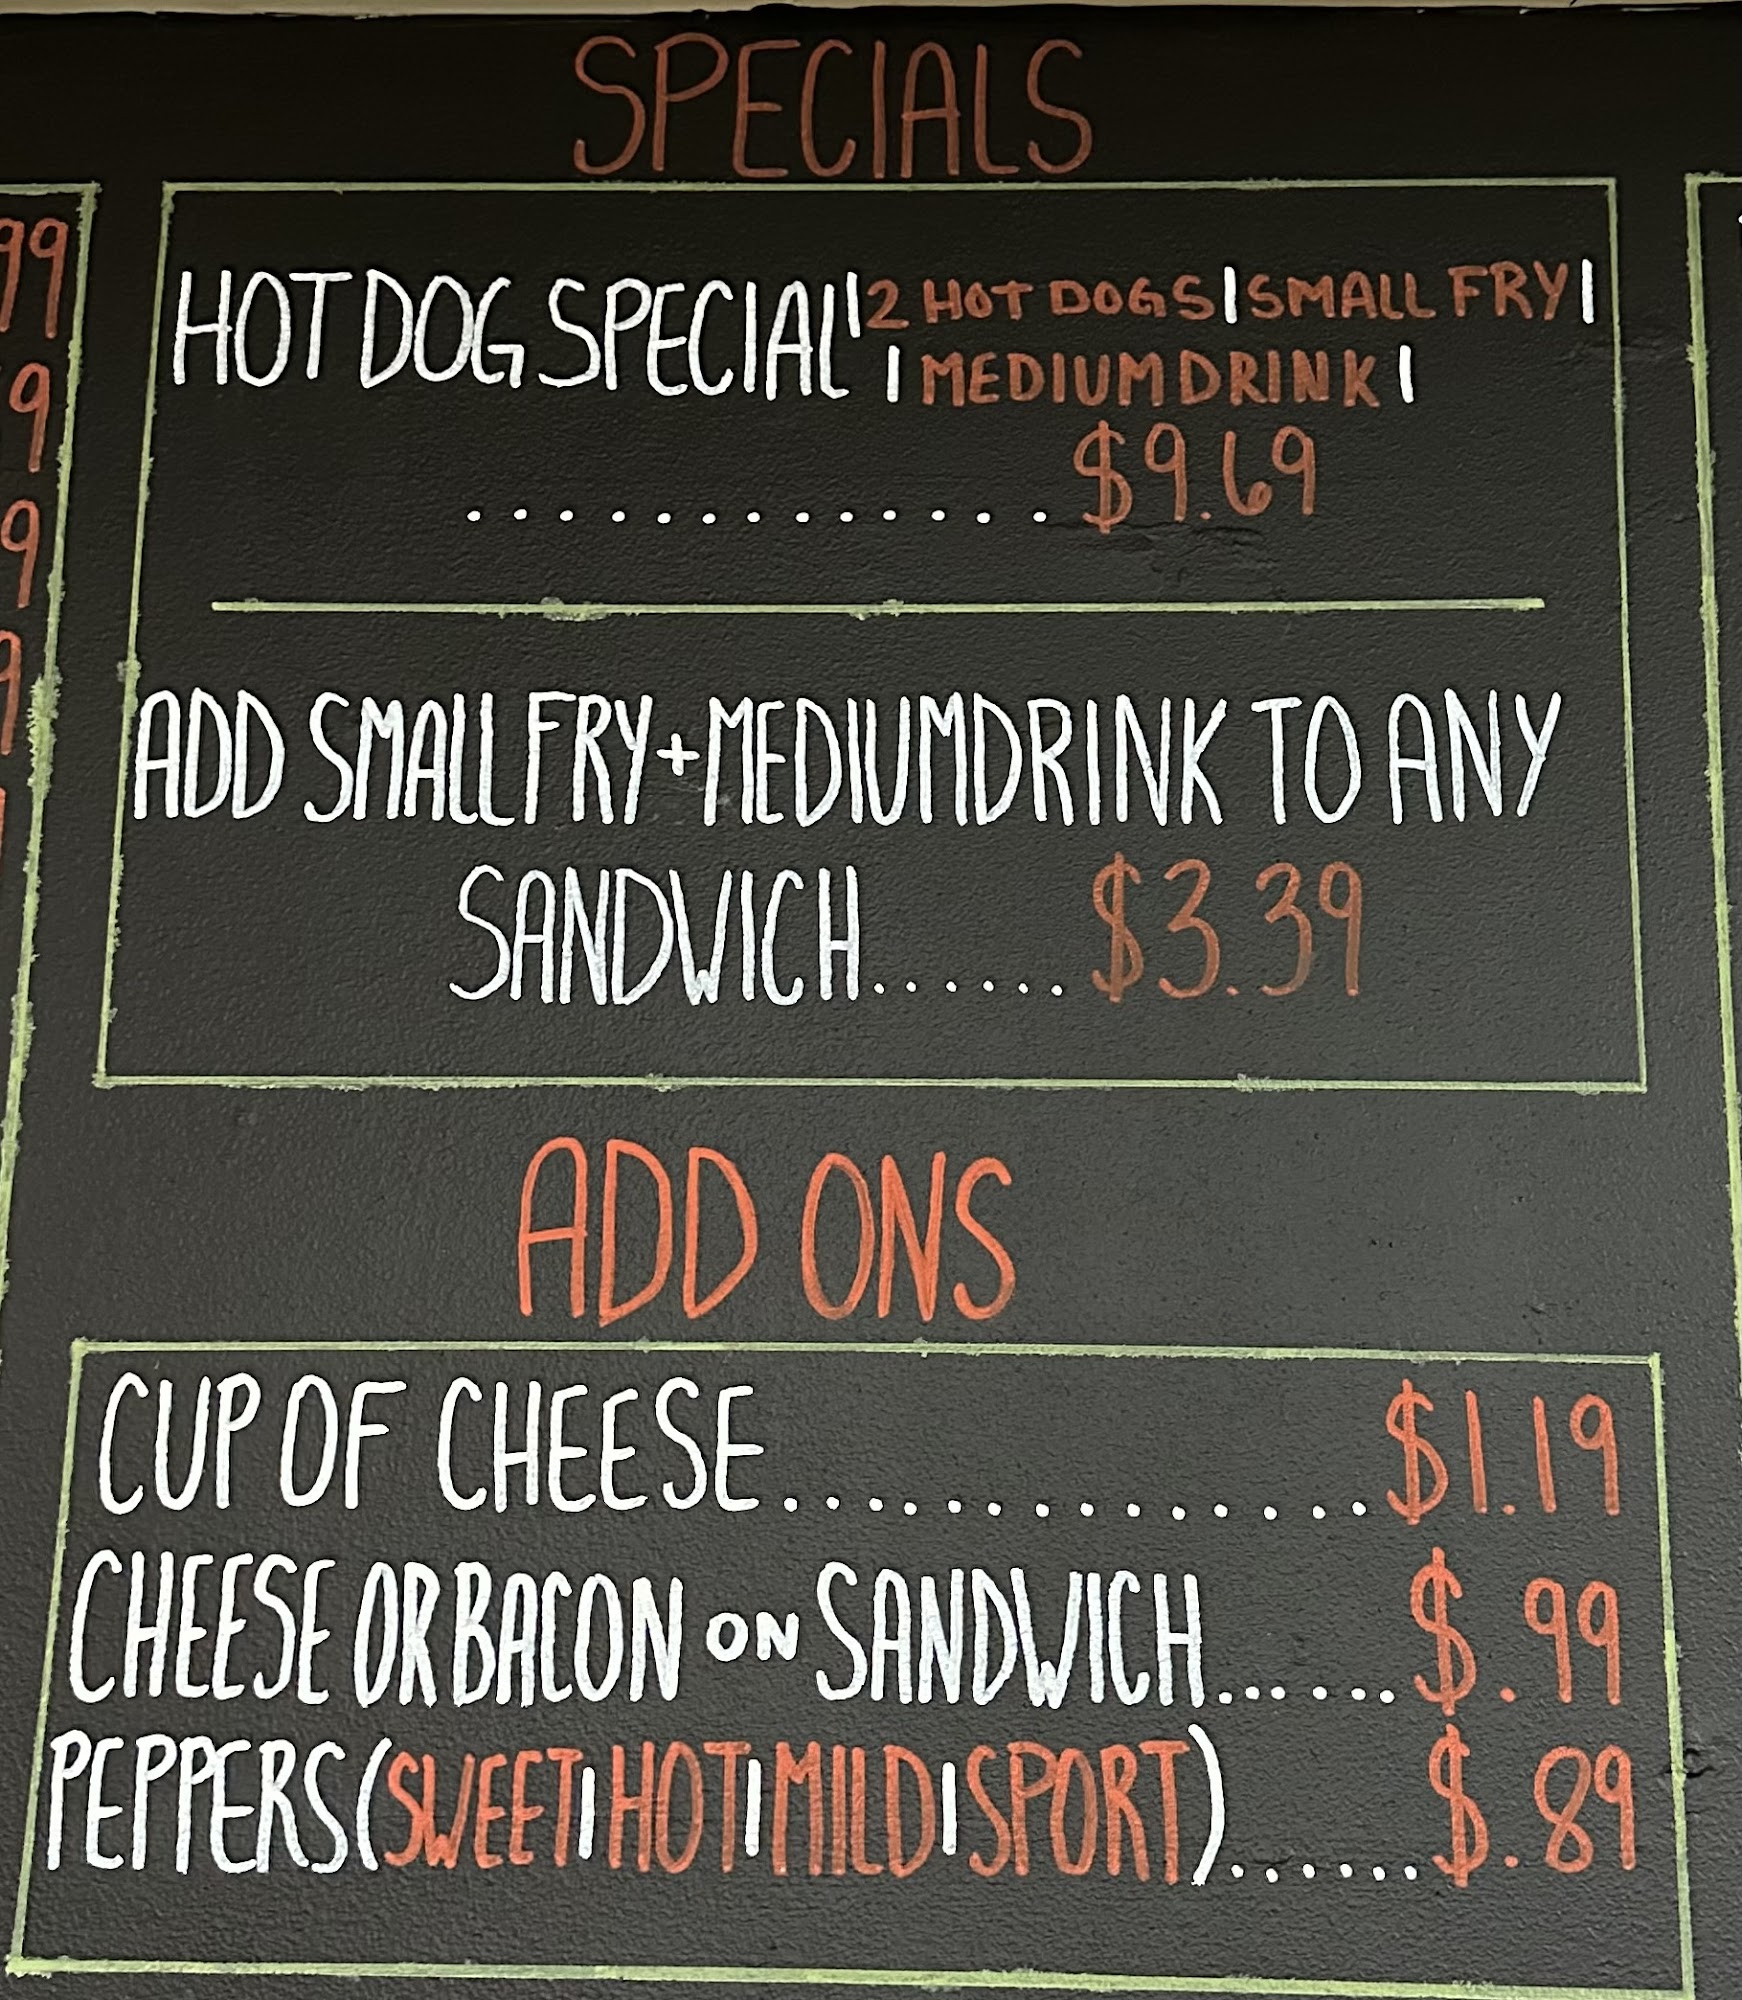 SPECIALS
HOT DOG SPECIAL |2 HOT DOGS|SMALL FRY|
|MEDIUM DRINK|
..............$9.69
ADD SMALL FRY+MEDIUM DRINK TO ANY
SANDWICH......$3.39
ADD ONS
CUP OF CHEESE................$1.19
CHEESE OR BACON ON SANDWICH......$.99
PEPPERS(SWEET|HOT|MILD|SPORT)......$.89
99
9
9
9